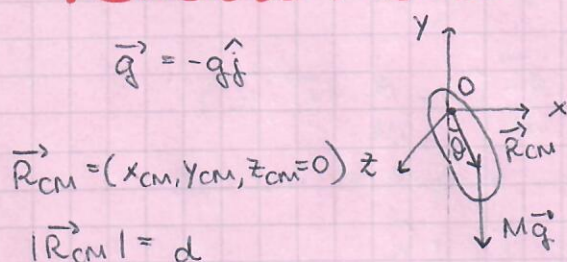 g⃗ = -gĵ
R⃗_CM = (x_CM, y_CM, z_CM=0)
|R⃗_CM| = d
Y
O
X
θ
R⃗_CM
Z
Mg⃗